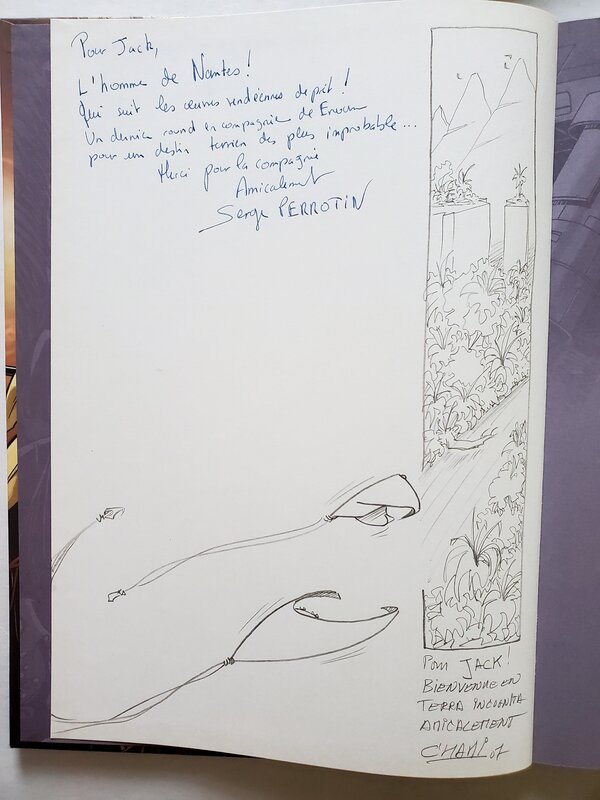 Pour Jack,
L'homme de Nantes !
Qui suit les œuvres vendéennes de près !
Un dernier round en compagnie de
pour un destin terrien des plus improbable...
Merci pour la compagnie
Amicalement
Serge PERROTIN
Pour JACK !
BIENVENUE EN
TERRA INCOGNITA
AMICALEMENT
CHAMI 07